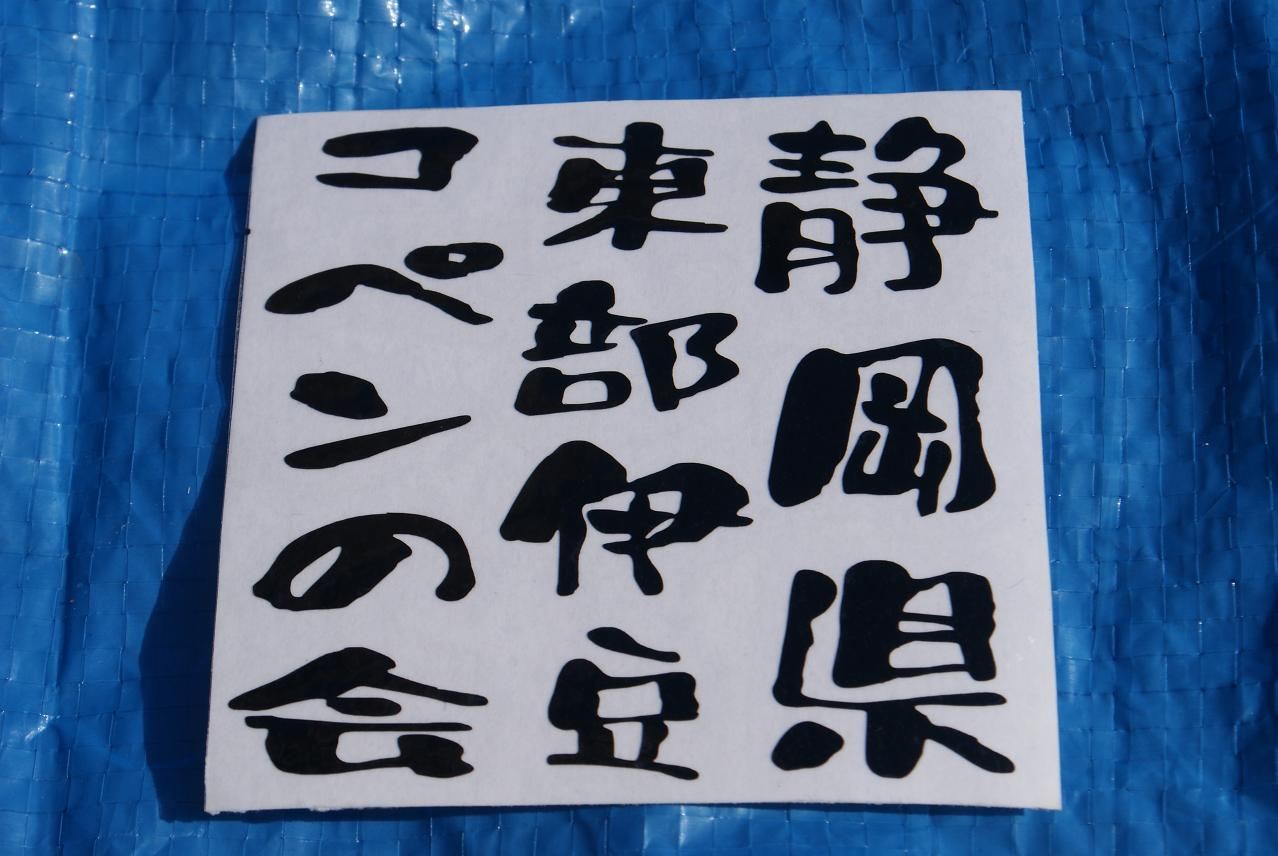 静岡県
東部伊豆
コペンの会